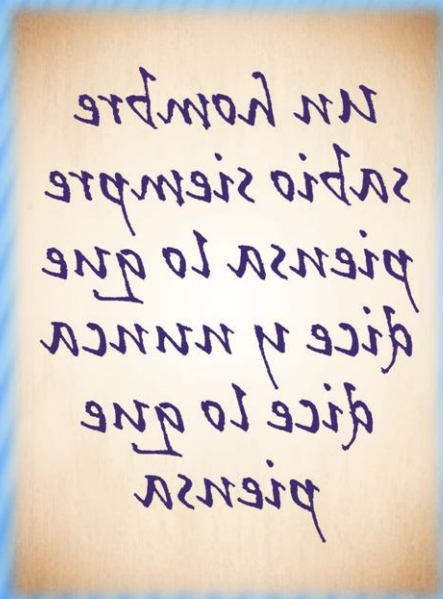 Un hombre
sabio siempre
piensa lo que
dice y nunca
dice lo que
piensa